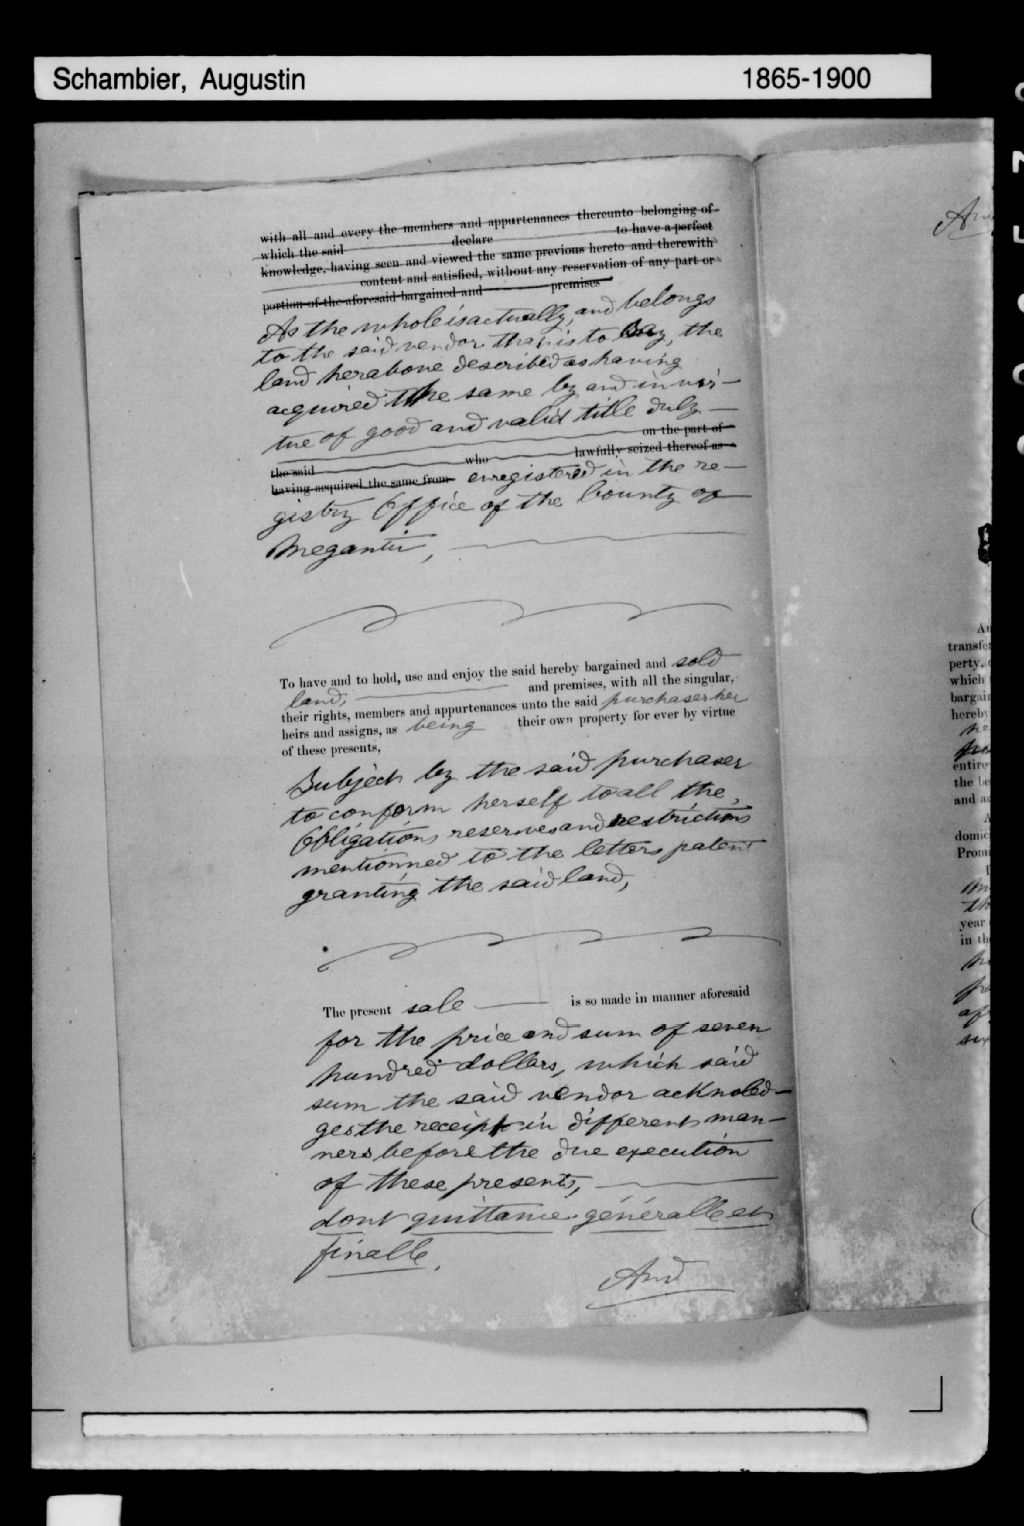 Schambier, Augustin 1865-1900
with all and every the members and appurtenances thereunto belonging of
which the said declare to have a perfect
knowledge, having seen and viewed the same previous hereto and therewith
content and satisfied, without any reservation of any part or
portion of the aforesaid bargained and premises
As the whole is actually, and belongs
to the said vendor that is to Say, the
land herabove described as having
acquired the same by and in vir-
tue of good and valid title duly
on the part of
the said who lawfully seized thereof as
having acquired the same from enregistered in the re-
gistry Office of the County of
Megantic,
To have and to hold, use and enjoy the said hereby bargained and sold
land, and premises, with all the singular,
their rights, members and appurtenances unto the said purchaser her
heirs and assigns, as being their own property for ever by virtue
of these presents,
Subject by the said purchaser
to conform herself to all the,
Obligations reserves and restrictions
mentionned to the letters patent
granting the said land,
The present sale is so made in manner aforesaid
for the price and sum of seven
hundred dollars, which said
sum the said vendor acknoled-
ges the receipt in different man-
ners before the due execution
of these presents,
dont quittance généralle et
finalle.
And
An
transfe
perty,
which
bargai
hereby
entire
the be
and a
domic
Prom
year
in th